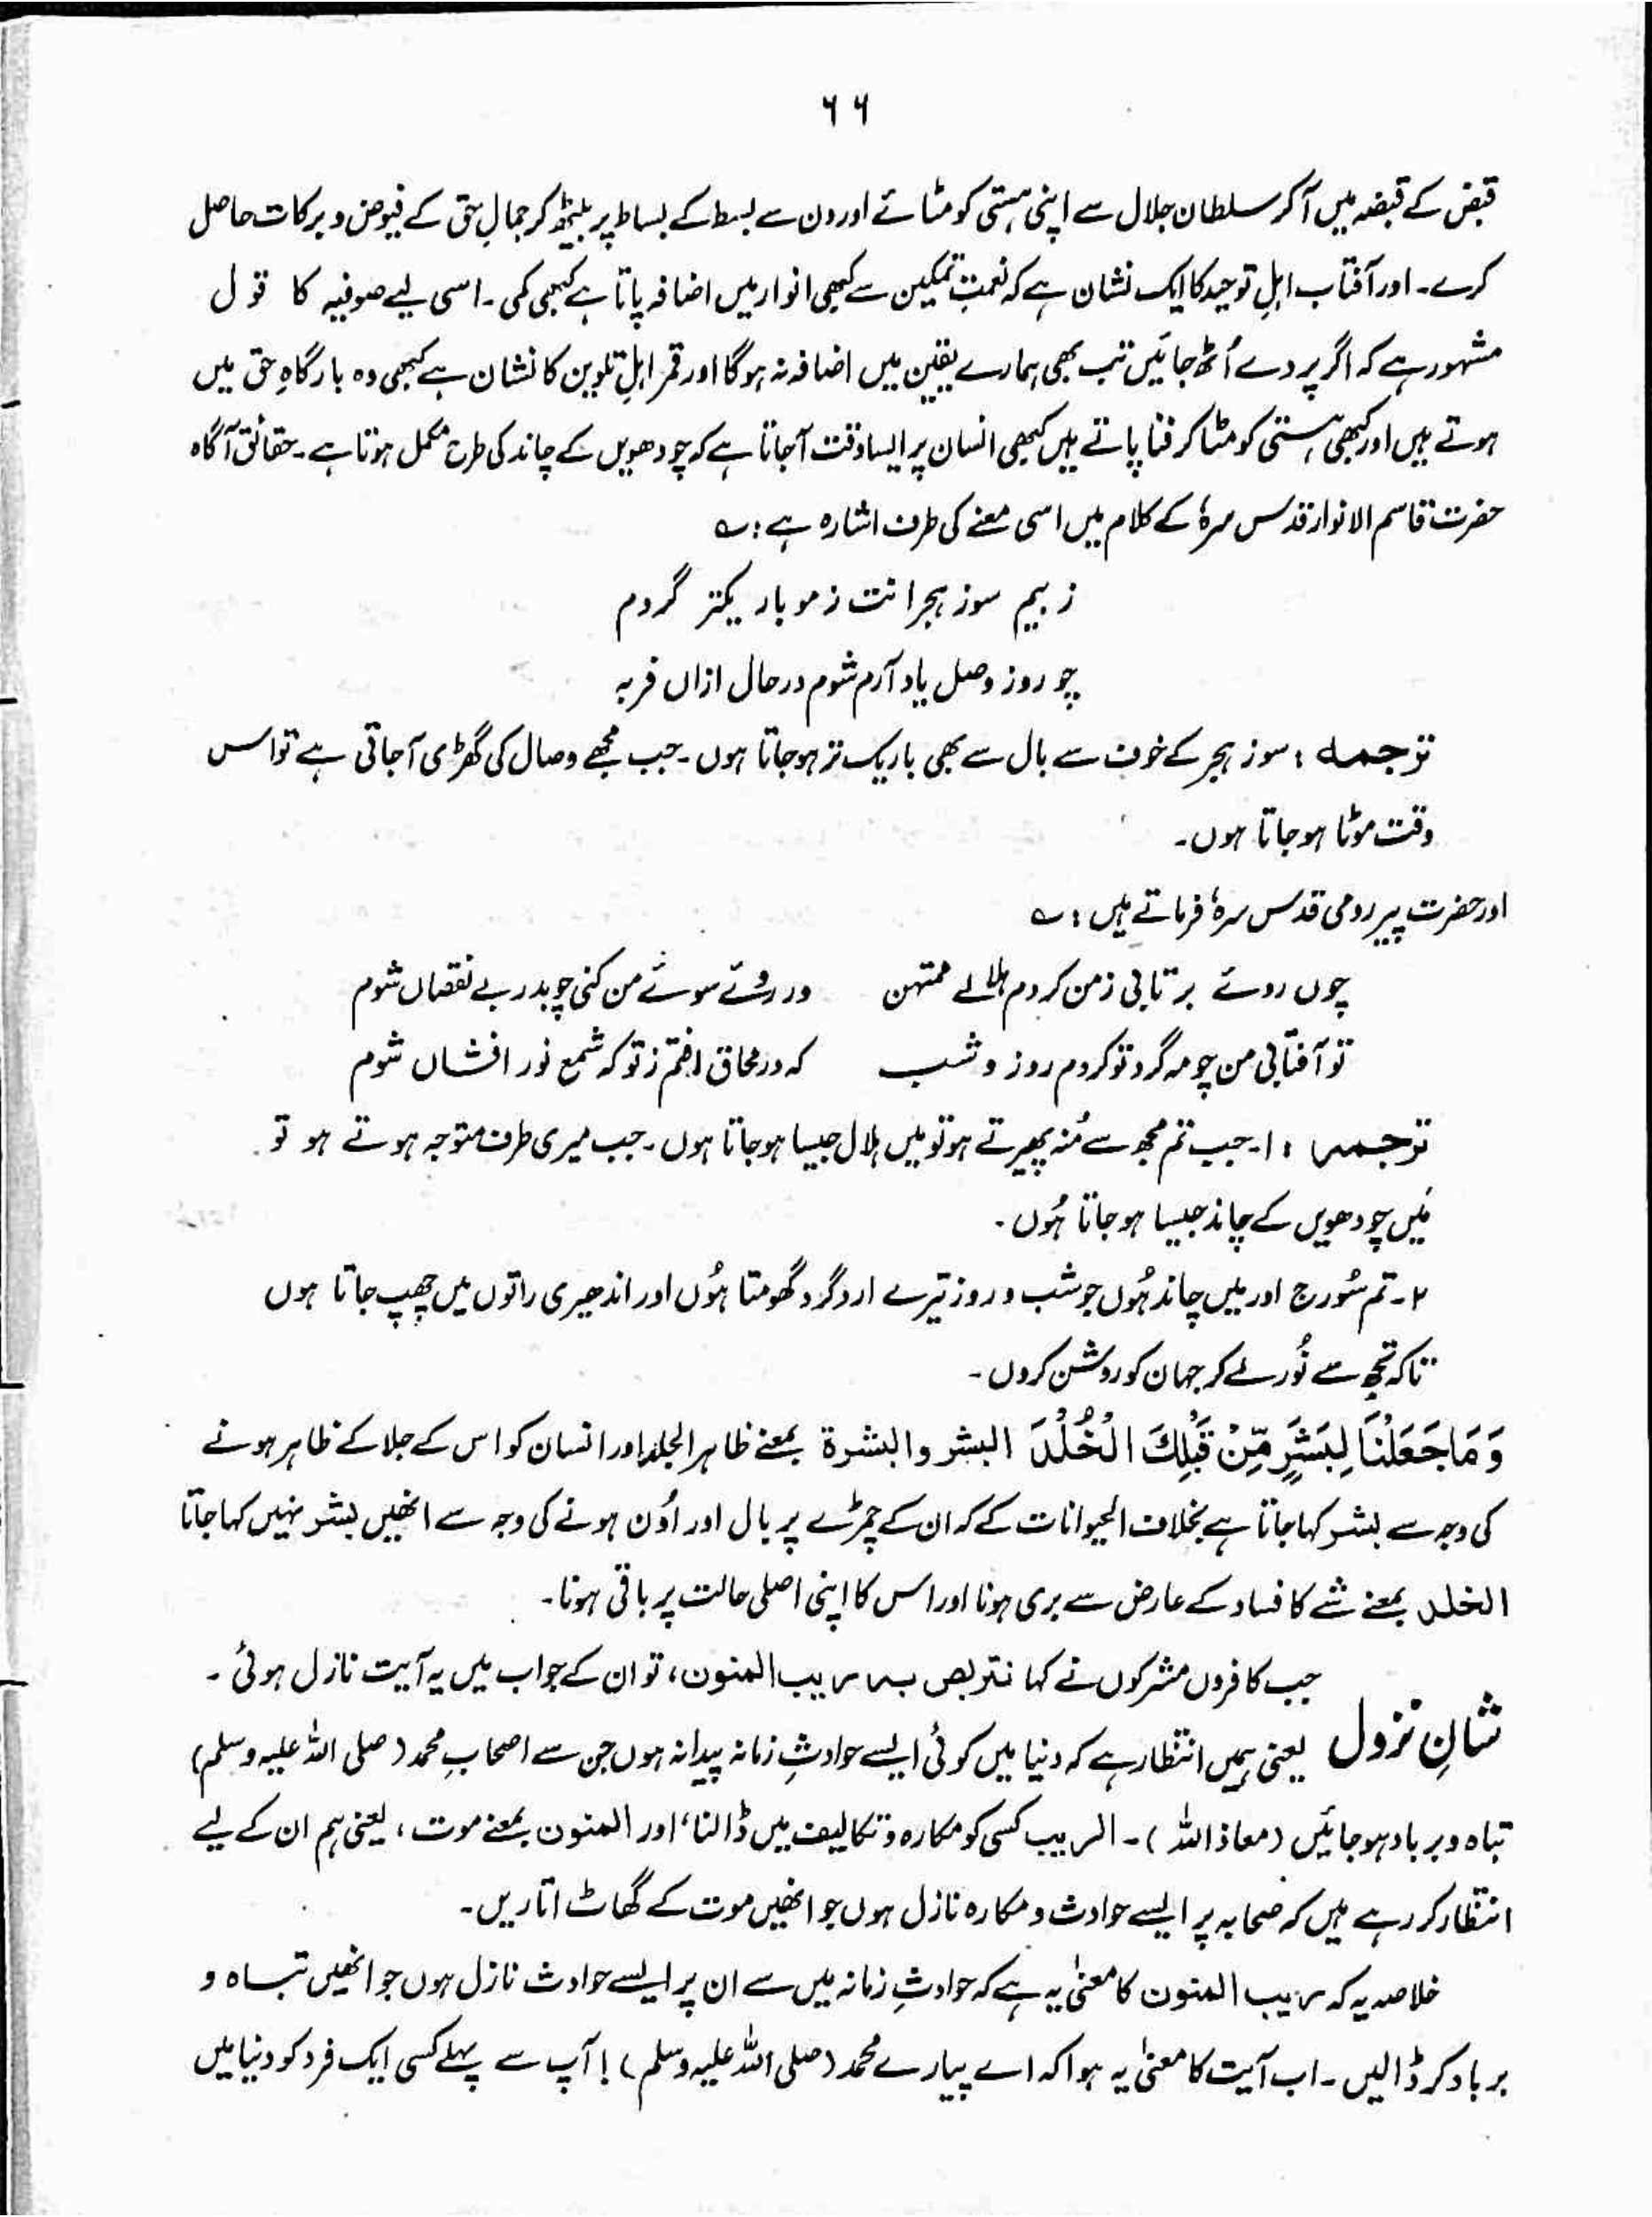 ۶۶
قبض کے قبضہ میں آکر سلطان جلال سے اپنی ہستی کو مٹائے اور دن سے بسط کے بساط پر بیٹھ کر جمالِ حق کے فیوض و برکات حاصل
کرے۔ اور آفتاب اہلِ توحید کا ایک نشان ہے کہ نعمتِ تمکین سے کبھی انوار میں اضافہ پاتا ہے کبھی کمی۔ اسی لیے صوفیہ کا قول
مشہور ہے کہ اگر پردے اُٹھ جائیں تب بھی ہمارے یقین میں اضافہ نہ ہوگا اور قمر اہلِ تلوین کا نشان ہے کبھی وہ بارگاہِ حق میں
ہوتے ہیں اور کبھی ہستی کو مٹا کر فنا پاتے ہیں کبھی انسان پر ایسا وقت آجاتا ہے کہ چودھویں کے چاند کی طرح مکمل ہوتا ہے۔ حقائق آگاہ
حضرت قاسم الانوار قدس سرہٗ کے کلام میں اسی معنے کی طرف اشارہ ہے : ؎
ز بیم سوز ہجرانت ز مو باریکتر گردم
چو روز وصل یاد آرم شوم در حال ازاں فربہ
ترجمہ : سوز ہجر کے خوف سے بال سے بھی باریک تر ہوجاتا ہوں۔ جب مجھے وصال کی گھڑی آجاتی ہے تو اس
وقت موٹا ہوجاتا ہوں۔
اور حضرت پیر رومی قدس سرہٗ فرماتے ہیں : ؎
چوں روئے برتابی ز من گردم ہلالے ممتہن ور روئے سوئے من کنی چو بدر بے نقصاں شوم
تو آفتابی من چو مہ گرد تو گردم روز و شب کہ در محاق افتم ز تو کہ شمع نور افشاں شوم
ترجمہ : ۱۔ جب تم مجھ سے مُنہ پھیرتے ہو تو میں ہلال جیسا ہوجاتا ہوں۔ جب میری طرف متوجہ ہوتے ہو تو
مَیں چودھویں کے چاند جیسا ہوجاتا ہُوں۔
۲۔ تم سُورج اور میں چاند ہُوں جو شب و روز تیرے ارد گرد گھومتا ہُوں اور اندھیری راتوں میں چھپ جاتا ہوں
تاکہ تجھ سے نُور لے کر جہان کو روشن کروں۔
وَمَا جَعَلْنَا لِبَشَرٍ مِّنْ قَبْلِكَ الْخُلْدَ البشر والبشرة بمعنے ظاہر الجلد اور انسان کو اس کے جلد کے ظاہر ہونے
کی وجہ سے بشر کہا جاتا ہے بخلاف الحیوانات کے کہ ان کے چمڑے پر بال اور اُون ہونے کی وجہ سے انھیں بشر نہیں کہا جاتا
الخلد بمعنے شے کا فساد کے عارض سے بری ہونا اور اس کا اپنی اصلی حالت پر باقی ہونا۔
جب کافروں مشرکوں نے کہا نتربص بہ ریب المنون، تو ان کے جواب میں یہ آیت نازل ہوئی۔
شانِ نزول یعنی ہمیں انتظار ہے کہ دنیا میں کوئی ایسے حوادثِ زمانہ پیدا نہ ہوں جن سے اصحابِ محمد (صلی اللہ علیہ وسلم)
تباہ و برباد ہو جائیں (معاذ اللہ)۔ الریب کسی کو مکارہ و تکالیف میں ڈالنا، اور المنون بمعنے موت، یعنی ہم ان کے لیے
انتظار کر رہے ہیں کہ صحابہ پر ایسے حوادث و مکارہ نازل ہوں جو انھیں موت کے گھاٹ اتاریں۔
خلاصہ یہ کہ ریب المنون کا معنیٰ یہ ہے کہ حوادثِ زمانہ میں سے ان پر ایسے حوادث نازل ہوں جو انھیں تباہ و
برباد کر ڈالیں۔ اب آیت کا معنیٰ یہ ہوا کہ اے پیارے محمد (صلی اللہ علیہ وسلم)! آپ سے پہلے کسی ایک فرد کو دنیا میں